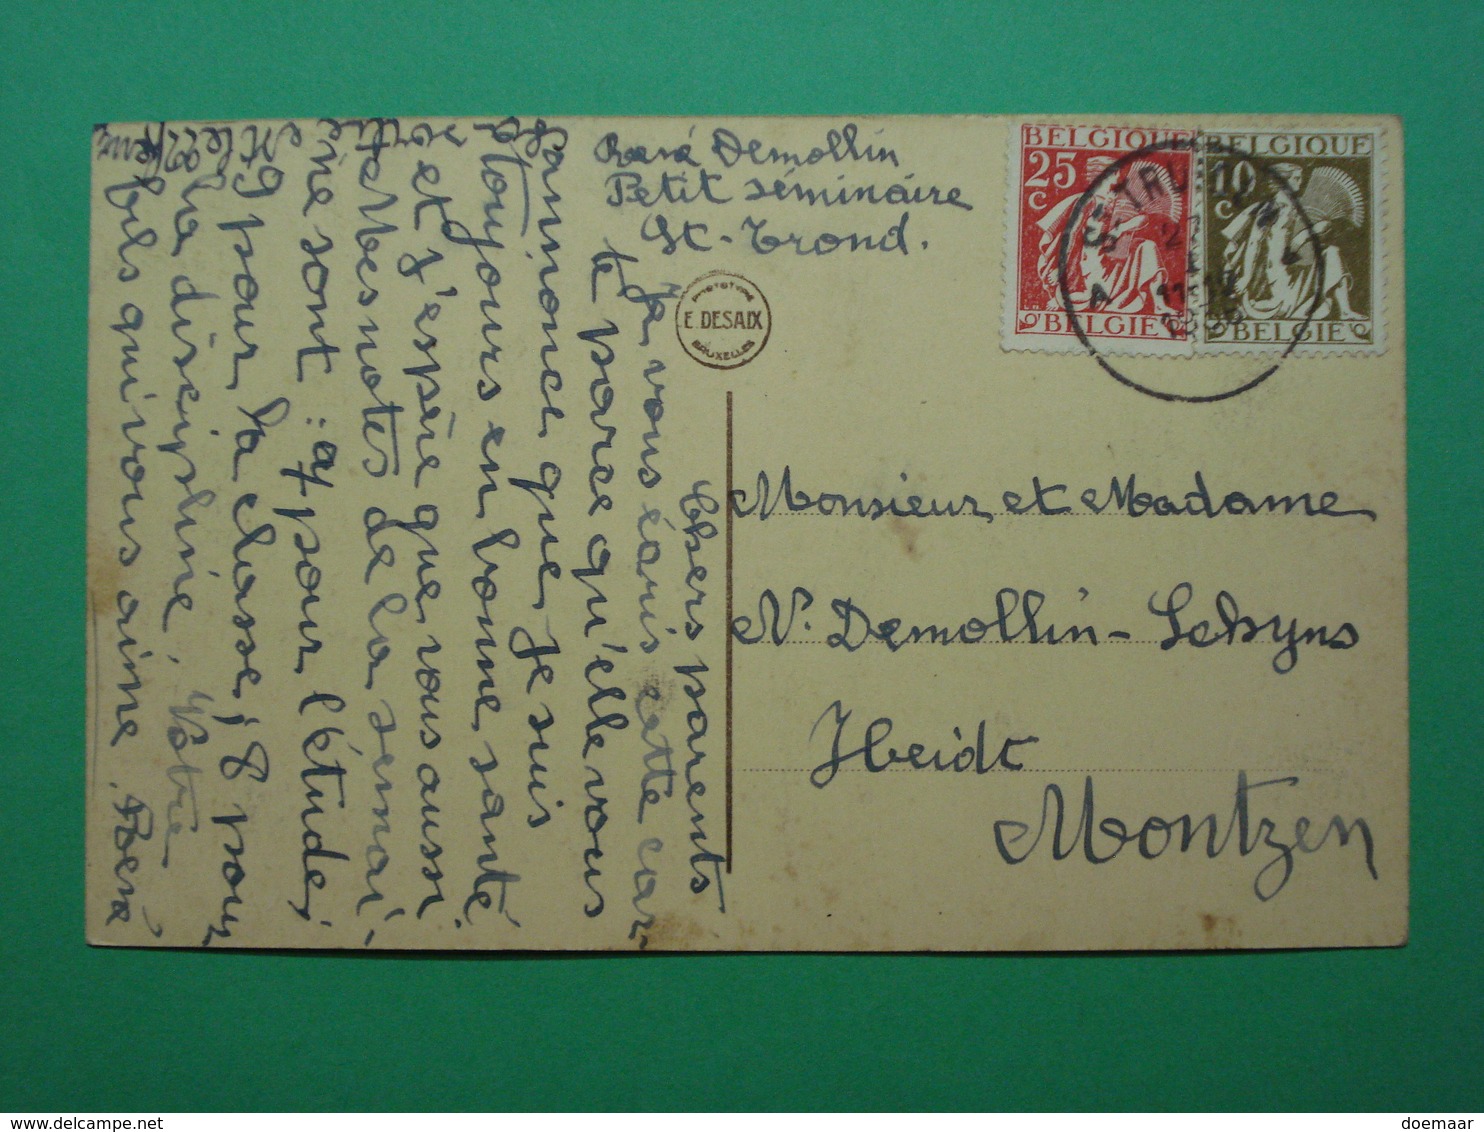 René Demollin
Petit séminaire
St-Trond.
BELGIQUE
25
C
BELGIE
BELGIQUE
10
C
BELGIE
PHOTOTYPIE
E. DESAIX
BRUXELLES
Monsieur et Madame
N. Demollin-Schyns
Heidt
Montzen
Chers parents
Je vous écris cette car-
te parce qu'elle vous
annonce que je suis
toujours en bonne santé
et j'espère que vous aussi
Mes notes de la semai-
ne sont : 9 pour l'étude,
9 pour la classe, 8 pour
la discipline. Votre
fils qui vous aime. René
doemaar